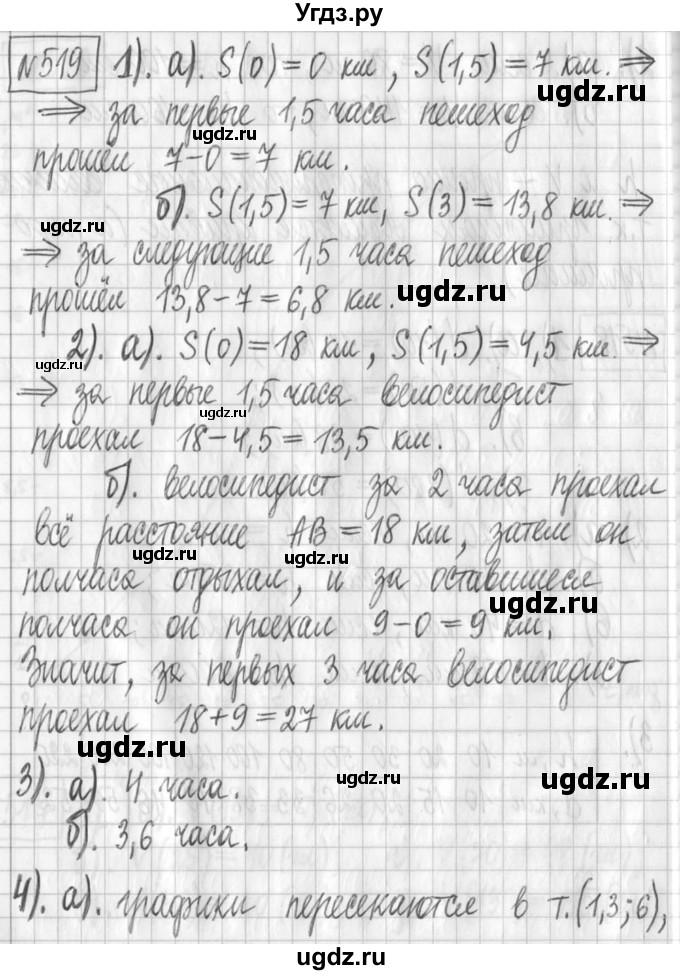 Угдз.ру
№519 1). а). S(0)=0 км, S(1,5)=7 км. ⇒
⇒ за первые 1,5 часа пешеход
ugdz.ru ugdz.ru
прошёл 7-0=7 км.
б). S(1,5)=7 км, S(3)=13,8 км. ⇒
ugdz.ru ugdz.ru
⇒ за следующие 1,5 часа пешеход
прошёл 13,8-7=6,8 км.
ugdz.ru
2). а). S(0)=18 км, S(1,5)=4,5 км. ⇒
ugdz.ru ugdz.ru
⇒ за первые 1,5 часа велосипедист
ugdz.ru
проехал 18-4,5=13,5 км.
б). велосипедист за 2 часа проехал
ugdz.ru
всё расстояние АВ=18 км, затем он
ugdz.ru ugdz.ru
полчаса отдыхал, и за оставшиеся
ugdz.ru
полчаса он проехал 9-0=9 км.
Значит, за первых 3 часа велосипедист
проехал 18+9=27 км.
ugdz.ru
3). а). 4 часа.
ugdz.ru ugdz.ru
б). 3,6 часа.
4). а). графики пересекаются в т.(1,3;6),
ugdz.ru